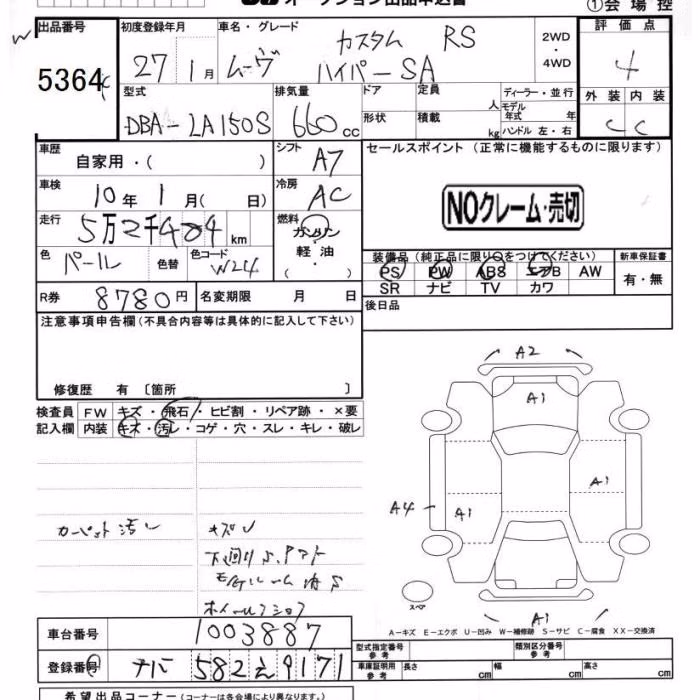 オークション出品申込書
①会場控
出品番号 初度登録年月 車名・グレード 2WD・4WD 評価点
5364 27 1月 ムーヴ カスタム RS ハイパーSA 4
型式 排気量 ドア 定員 人 ディーラー・並行 外装 内装
DBA-LA150S 660cc 形状 積載 kg モデル年式 年 ハンドル 左・右 C C
車歴 自家用・( ) シフト A7 セールスポイント (正常に機能するものに限ります)
車検 10年 1月( 日) 冷房 AC
NOクレーム・売切
走行 km 燃料 ガソリン・軽油・( )
装備品 (純正品に限り○をつけてください) 新車保証書
色 パール 色替 色コード W24 PS PW ABS エアB AW 有・無
SR ナビ TV カワ
R券 8780円 名変期限 月 日 後日品
注意事項申告欄 (不具合内容等は具体的に記入して下さい)
修復歴 有 〔箇所 〕
検査員 FW キズ・飛石・ヒビ割・リペア跡・×要
記入欄 内装 キズ・汚レ・コゲ・穴・スレ・キレ・破レ
A2
A1
A1
A4 A1
カーペット汚レ キズU
スペア
A1
A-キズ E-エクボ U-凹み W-補修跡 S-サビ C-腐食 XX-交換済
車台番号 1003887
型式指定番号 参考 類別区分番号 参考
登録番号 582え9171
車庫証明用 参考 長さ cm 幅 cm 高さ cm
希望出品コーナー (コーナーは各会場により異なります。)